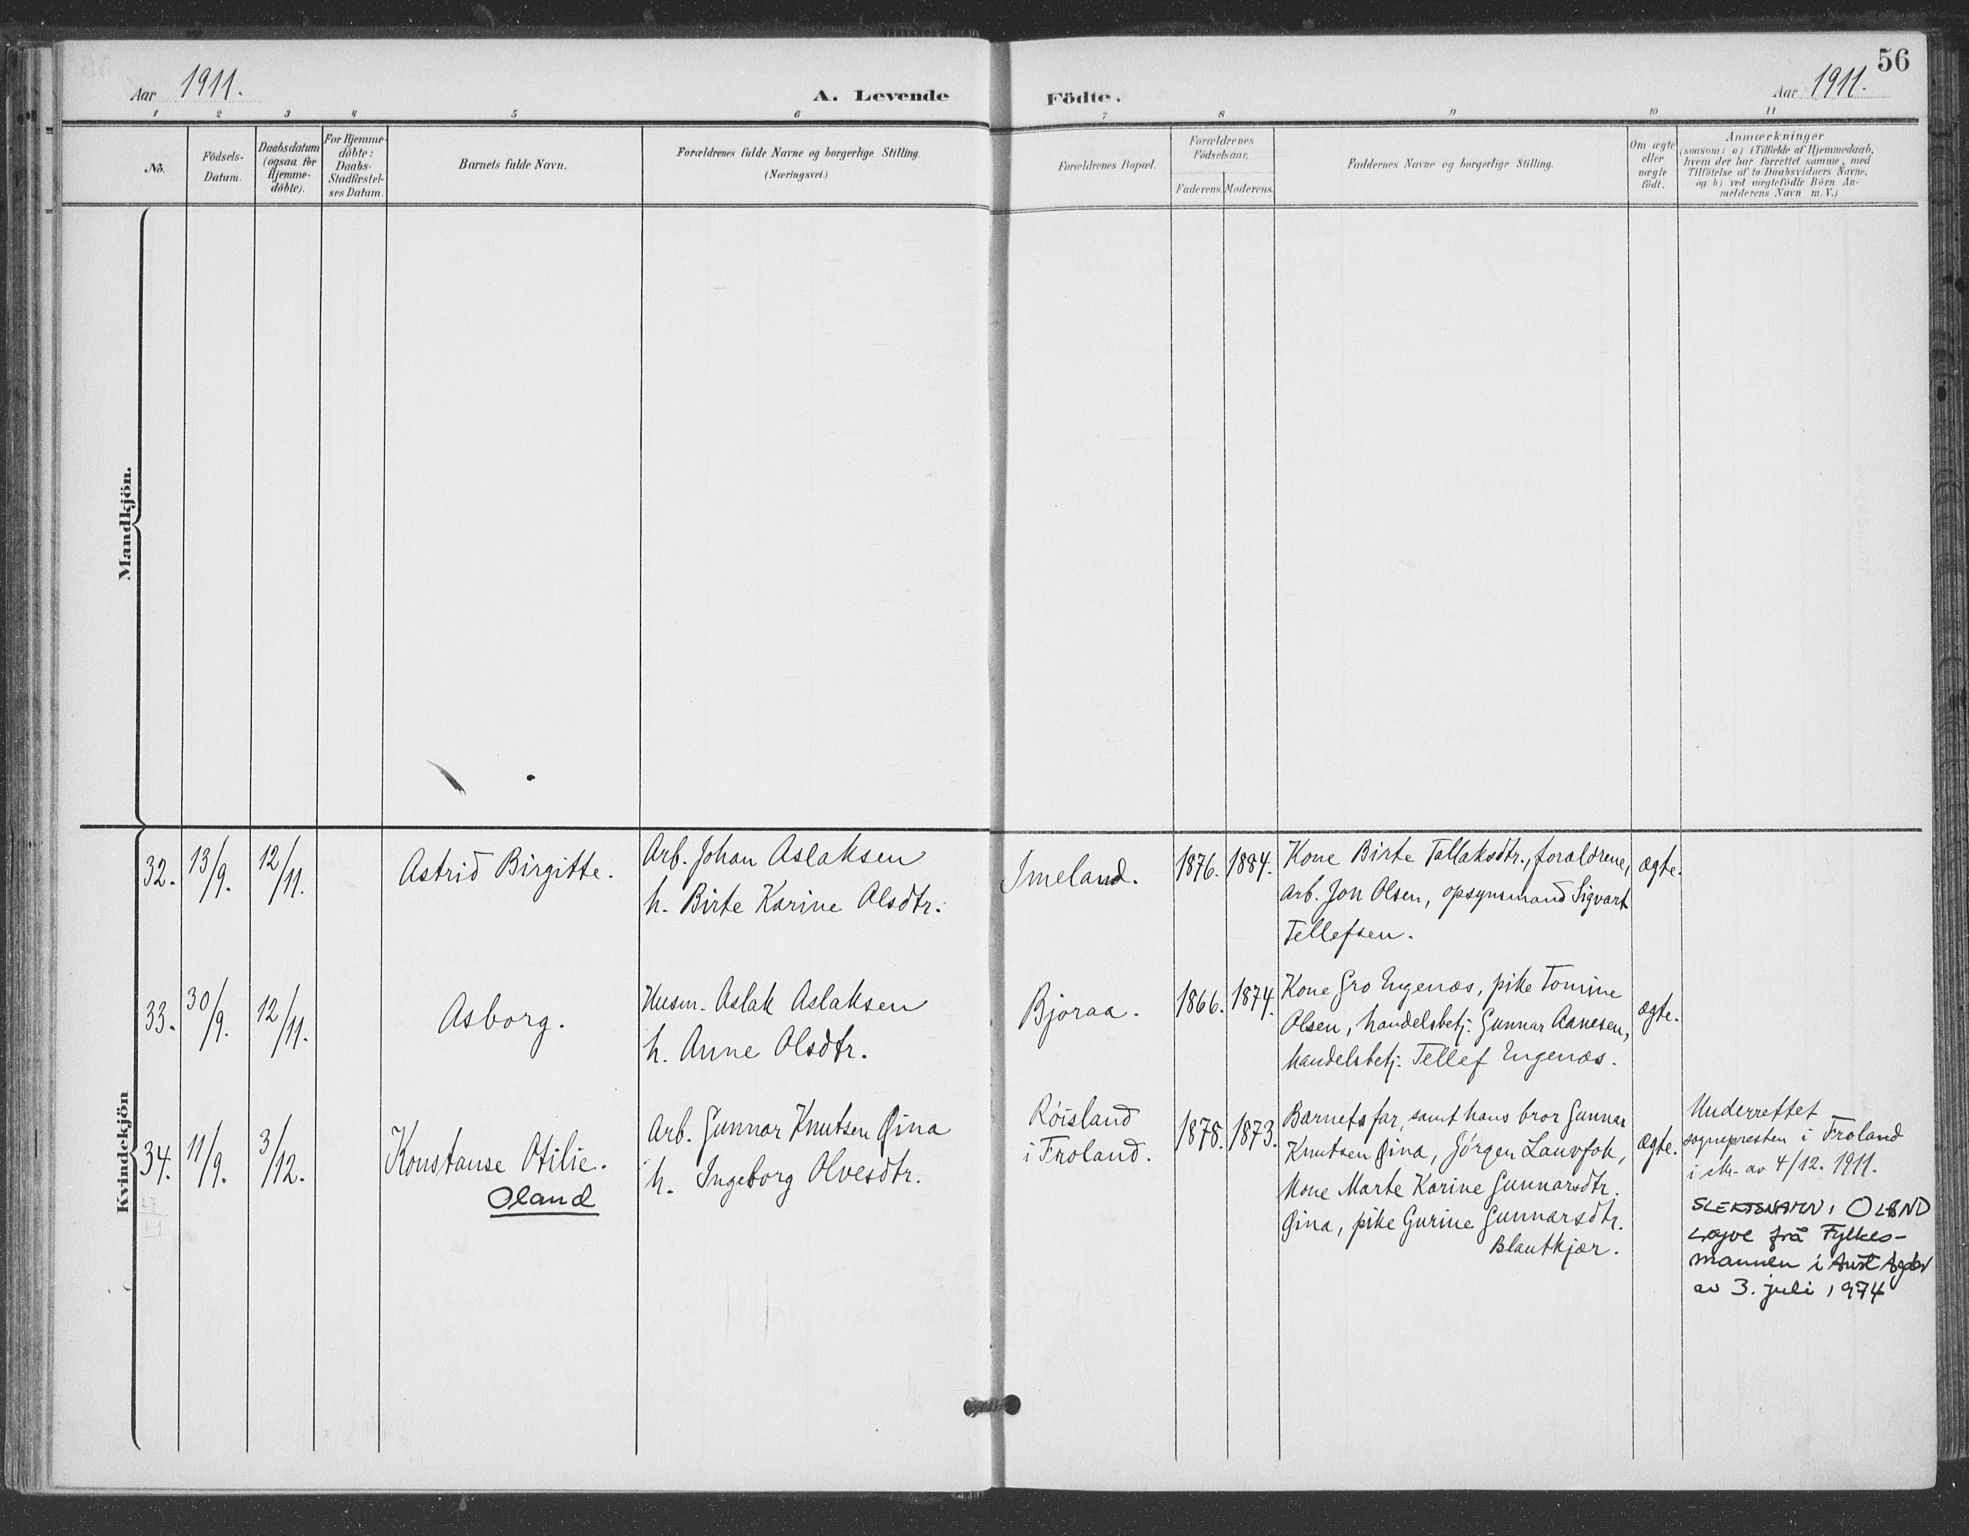 56
Aar 1911.
A. Levende Födte.
Aar 1911.
1 2 3 4 5 6 7 8 9 10 11
No.
Födsels-
Datum.
Daabsdatum
(ogsaa for
Hjemme-
döbte).
For Hjemme-
döbte:
Daabs-
Stadfæstel-
ses Datum.
Barnets fulde Navn.
Forældrenes fulde Navne og borgerlige Stilling.
(Næringsvei.)
Forældrenes Bopæl.
Forældrenes
Födselsaar.
Faderens. Moderens.
Faddernes Navne og borgerlige Stilling.
Om ægte
eller
uægte
födt.
Anmærkninger
(saasom: a) i Tilfælde af Hjemmedaab,
hvem der har forrettet samme, med
Tilföielse af to Daabsvidners Navne.
og b) ved uægtefödte Börn An-
melderens Navn m. V.)
Mandkjön.
Kvindekjön
32. 13/9. 12/11. Astrid Birgitte.
Arb. Johan Aslaksen
h. Birte Karine Olsdtr.
Imeland. 1876. 1884.
Kone Birte Tallaksdtr., forældrene,
arb. Jon Olsen, opsynsmand Sigvart
Tellefsen.
ægte.
33. 30/9. 12/11. Asborg.
Husm. Aslak Aslaksen
h. Anne Olsdtr.
Bjoraa. 1866. 1874.
Kone Gro Engenæs, pike Tomine
Olsen, handelsbetj. Gunnar Aanesen,
handelsbetj. Tellef Engenæs.
ægte.
34. 11/9. 3/12. Konstanse Otilie.
Oland
Arb. Gunnar Knutsen Øina
h. Ingeborg Olvesdtr.
Røisland
i Froland.
1878. 1873.
Barnets far, samt hans bror Gunnar
Knutsen Øina, Jørgen Lauvfok,
Kone Marte Karine Gunnarsdtr.
Øina, pike Gurine Gunnarsdtr.
Blautkjær.
ægte.
Underrettet
sognepresten i Froland
i skr. av 4/12. 1911.
SLEKTSNAMN: OLAND
Løyve frå Fylkes-
mannen i Aust Agder
av 3. juli 1974